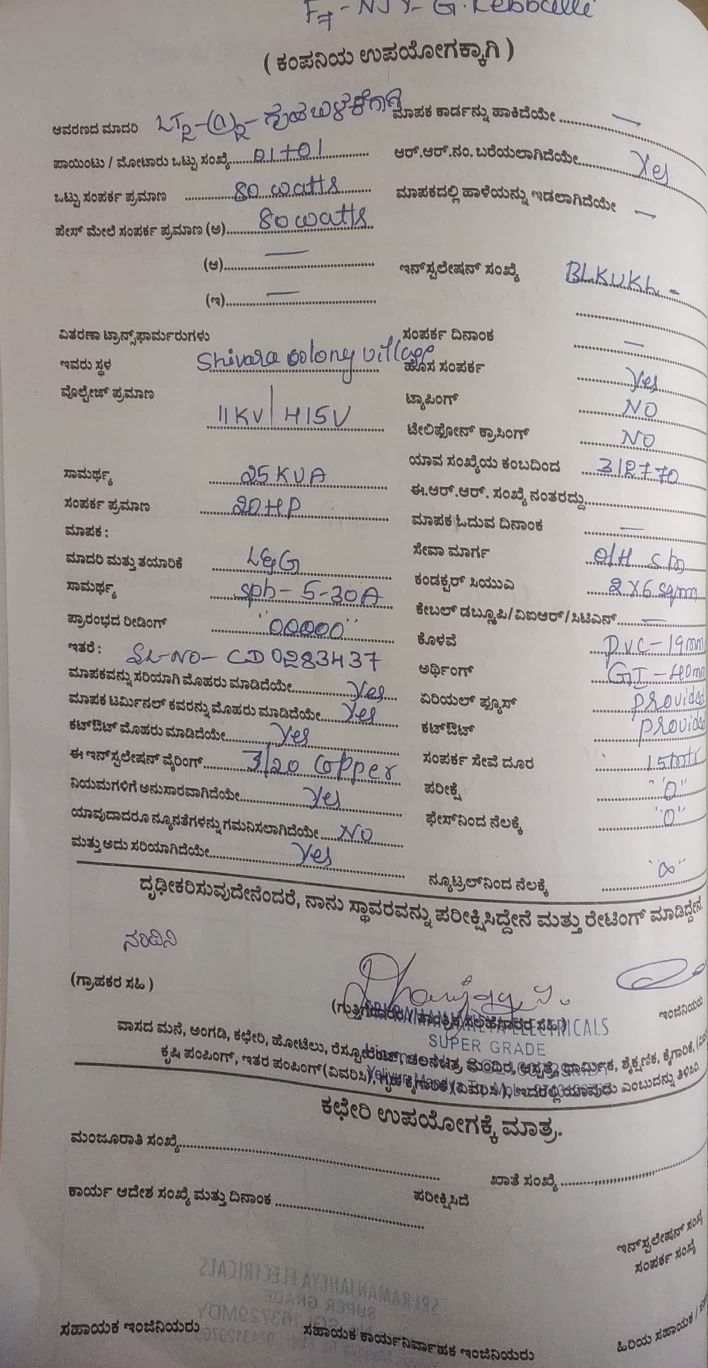 F7 - NJY - G.
( ಕಂಪನಿಯ ಉಪಯೋಗಕ್ಕಾಗಿ )
ಆವರಣದ ಮಾದರಿ LT2-(a)2- ಗೃಹ ಬಳಕೆಗಾಗಿ ಮಾಪಕ ಕಾರ್ಡನ್ನು ಹಾಕಿದೆಯೇ —
ಪಾಯಿಂಟು / ಮೋಟಾರು ಒಟ್ಟು ಸಂಖ್ಯೆ 01+01 ಆರ್.ಆರ್.ನಂ. ಬರೆಯಲಾಗಿದೆಯೇ Yes
ಒಟ್ಟು ಸಂಪರ್ಕ ಪ್ರಮಾಣ 80 watts ಮಾಪಕದಲ್ಲಿ ಹಾಳೆಯನ್ನು ಇಡಲಾಗಿದೆಯೇ —
ಪೇಸ್ ಮೇಲೆ ಸಂಪರ್ಕ ಪ್ರಮಾಣ (ಅ) 80 watts
(ಆ) — ಇನ್‌ಸ್ಟಲೇಷನ್ ಸಂಖ್ಯೆ BLKUKL -
(ಇ) —
ವಿತರಣಾ ಟ್ರಾನ್ಸ್‌ಫಾರ್ಮರುಗಳು ಸಂಪರ್ಕ ದಿನಾಂಕ —
ಇವರು ಸ್ಥಳ Shivara colony village ಹೊಸ ಸಂಪರ್ಕ Yes
ವೊಲ್ಟೇಜ್ ಪ್ರಮಾಣ 11KV/415V ಟ್ಯಾಪಿಂಗ್ NO
ಟೇಲಿಫೋನ್ ಕ್ರಾಸಿಂಗ್ NO
ಸಾಮರ್ಥ್ಯ 25 KVA ಯಾವ ಸಂಖ್ಯೆಯ ಕಂಬದಿಂದ
ಸಂಪರ್ಕ ಪ್ರಮಾಣ 20HP ಈ.ಆರ್.ಆರ್. ಸಂಖ್ಯೆ ನಂತರದ್ದು
ಮಾಪಕ : ಮಾಪಕ ಓದುವ ದಿನಾಂಕ —
ಮಾದರಿ ಮತ್ತು ತಯಾರಿಕೆ L&G ಸೇವಾ ಮಾರ್ಗ O/H
ಸಾಮರ್ಥ್ಯ sph - 5-30A ಕಂಡಕ್ಟರ್ ಸಿಯುಎ 2X6 sqmm
ಪ್ರಾರಂಭದ ರೀಡಿಂಗ್ "00000" ಕೇಬಲ್ ಡಬ್ಲೂಪಿ/ವಿಐಆರ್/ಸಿಟಿಎನ್ —
ಇತರೆ : SL-NO- CD0283437 ಕೊಳವೆ pvc-19mm
ಮಾಪಕವನ್ನು ಸರಿಯಾಗಿ ಮೊಹರು ಮಾಡಿದೆಯೇ Yes ಅರ್ಥಿಂಗ್ GI-40mm
ಮಾಪಕ ಟರ್ಮಿನಲ್ ಕವರನ್ನು ಮೊಹರು ಮಾಡಿದೆಯೇ Yes ಏರಿಯಲ್ ಫ್ಯೂಸ್ provided
ಕಟ್‌ಔಟ್ ಮೊಹರು ಮಾಡಿದೆಯೇ Yes ಕಟ್‌ಔಟ್ provided
ಈ ಇನ್‌ಸ್ಟಲೇಷನ್ ವೈರಿಂಗ್ 3/20 copper ಸಂಪರ್ಕ ಸೇವೆ ದೂರ
ನಿಯಮಗಳಿಗೆ ಅನುಸಾರವಾಗಿದೆಯೇ Yes ಪರೀಕ್ಷೆ "0"
ಯಾವುದಾದರೂ ನ್ಯೂನತೆಗಳನ್ನು ಗಮನಿಸಲಾಗಿದೆಯೇ NO ಫೇಸ್‌ನಿಂದ ನೆಲಕ್ಕೆ "0"
ಮತ್ತು ಅದು ಸರಿಯಾಗಿದೆಯೇ Yes ನ್ಯೂಟ್ರಲ್‌ನಿಂದ ನೆಲಕ್ಕೆ "∞"
ದೃಢೀಕರಿಸುವುದೇನೆಂದರೆ, ನಾನು ಸ್ಥಾವರವನ್ನು ಪರೀಕ್ಷಿಸಿದ್ದೇನೆ ಮತ್ತು ರೇಟಿಂಗ್ ಮಾಡಿದ್ದೇನೆ
ನಂದಿನಿ
(ಗ್ರಾಹಕರ ಸಹಿ ) ಇಂಜಿನಿಯರು
SUPER GRADE
ವಾಸದ ಮನೆ, ಅಂಗಡಿ, ಕಛೇರಿ, ಹೋಟೆಲು, ರೆಸ್ಟೂರೆಂಟ್, ಚಲನಚಿತ್ರ, ಮಂದಿರ, ಆಸ್ಪತ್ರೆ, ಧಾರ್ಮಿಕ, ಶೈಕ್ಷಣಿಕ, ಕೈಗಾರಿಕೆ,
ಕೃಷಿ ಪಂಪಿಂಗ್, ಇತರ ಪಂಪಿಂಗ್ (ವಿವರಿಸಿ), ಗೃಹ ಕೈಗಾರಿಕೆ (ವಿವರಿಸಿ), ಇದರಲ್ಲಿ ಯಾವುದು ಎಂಬುದನ್ನು ತಿಳಿಸಿರಿ.
ಕಛೇರಿ ಉಪಯೋಗಕ್ಕೆ ಮಾತ್ರ.
ಮಂಜೂರಾತಿ ಸಂಖ್ಯೆ ಖಾತೆ ಸಂಖ್ಯೆ
ಕಾರ್ಯ ಆದೇಶ ಸಂಖ್ಯೆ ಮತ್ತು ದಿನಾಂಕ ಪರೀಕ್ಷಿಸಿದೆ
ಇನ್‌ಸ್ಟಲೇಷನ್ ಸಂಖ್ಯೆ
ಸಂಪರ್ಕ ಸಂಖ್ಯೆ
SRI RAMANJANEYA ELECTRICALS
SUPER GRADE
ಸಹಾಯಕ ಇಂಜಿನಿಯರು ಸಹಾಯಕ ಕಾರ್ಯನಿರ್ವಾಹಕ ಇಂಜಿನಿಯರು ಹಿರಿಯ ಸಹಾಯಕ /